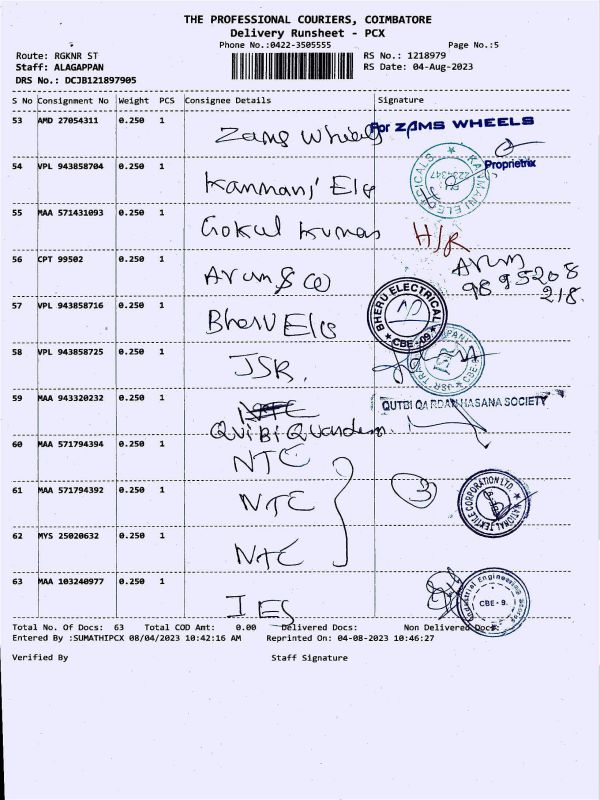 THE PROFESSIONAL COURIERS, COIMBATORE
Delivery Runsheet - PCX
Phone No.:0422-3505555 Page No.:5
Route: RGKNR ST RS No.: 1218979
Staff: ALAGAPPAN RS Date: 04-Aug-2023
DRS No.: DCJB121897905
S No Consignment No Weight PCS Consignee Details Signature
53 AMD 27054311 0.250 1 Zams Wheels For ZAMS WHEELS
Proprietrix
54 VPL 943858704 0.250 1 Kanmani Ele KANMANI ELECTRICALS
55 MAA 571431093 0.250 1 Gokul Kumar H/R
56 CPT 99502 0.250 1 Arum & co Arum
98 95208
218.
57 VPL 943858716 0.250 1 Bheru Ele BHERU ELECTRICAL
CBE-09
58 VPL 943858725 0.250 1 JSR.
59 MAA 943320232 0.250 1 QUTBI QARDAN HASANA SOCIETY
60 MAA 571794394 0.250 1 NTC
61 MAA 571794392 0.250 1 NTC 3 NATIONAL TEXTILE CORPORATION LTD.
62 MYS 25020632 0.250 1 NTC
63 MAA 103240977 0.250 1 IES Industrial Engineering Stores
CBE - 9.
Total No. Of Docs: 63 Total COD Amt: 0.00 Delivered Docs: Non Delivered Docs:
Entered By :SUMATHIPCX 08/04/2023 10:42:16 AM Reprinted On: 04-08-2023 10:46:27
Verified By Staff Signature